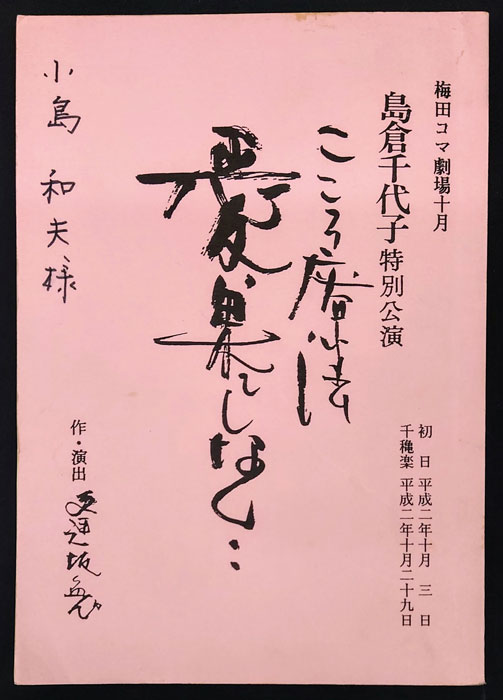 梅田コマ劇場十月
島倉千代子特別公演
初日 平成二年十月 三日
千穐楽 平成二年十月二十九日
こころ
愛、果てしなく‥
作・演出 逢坂勉
小島 和夫様